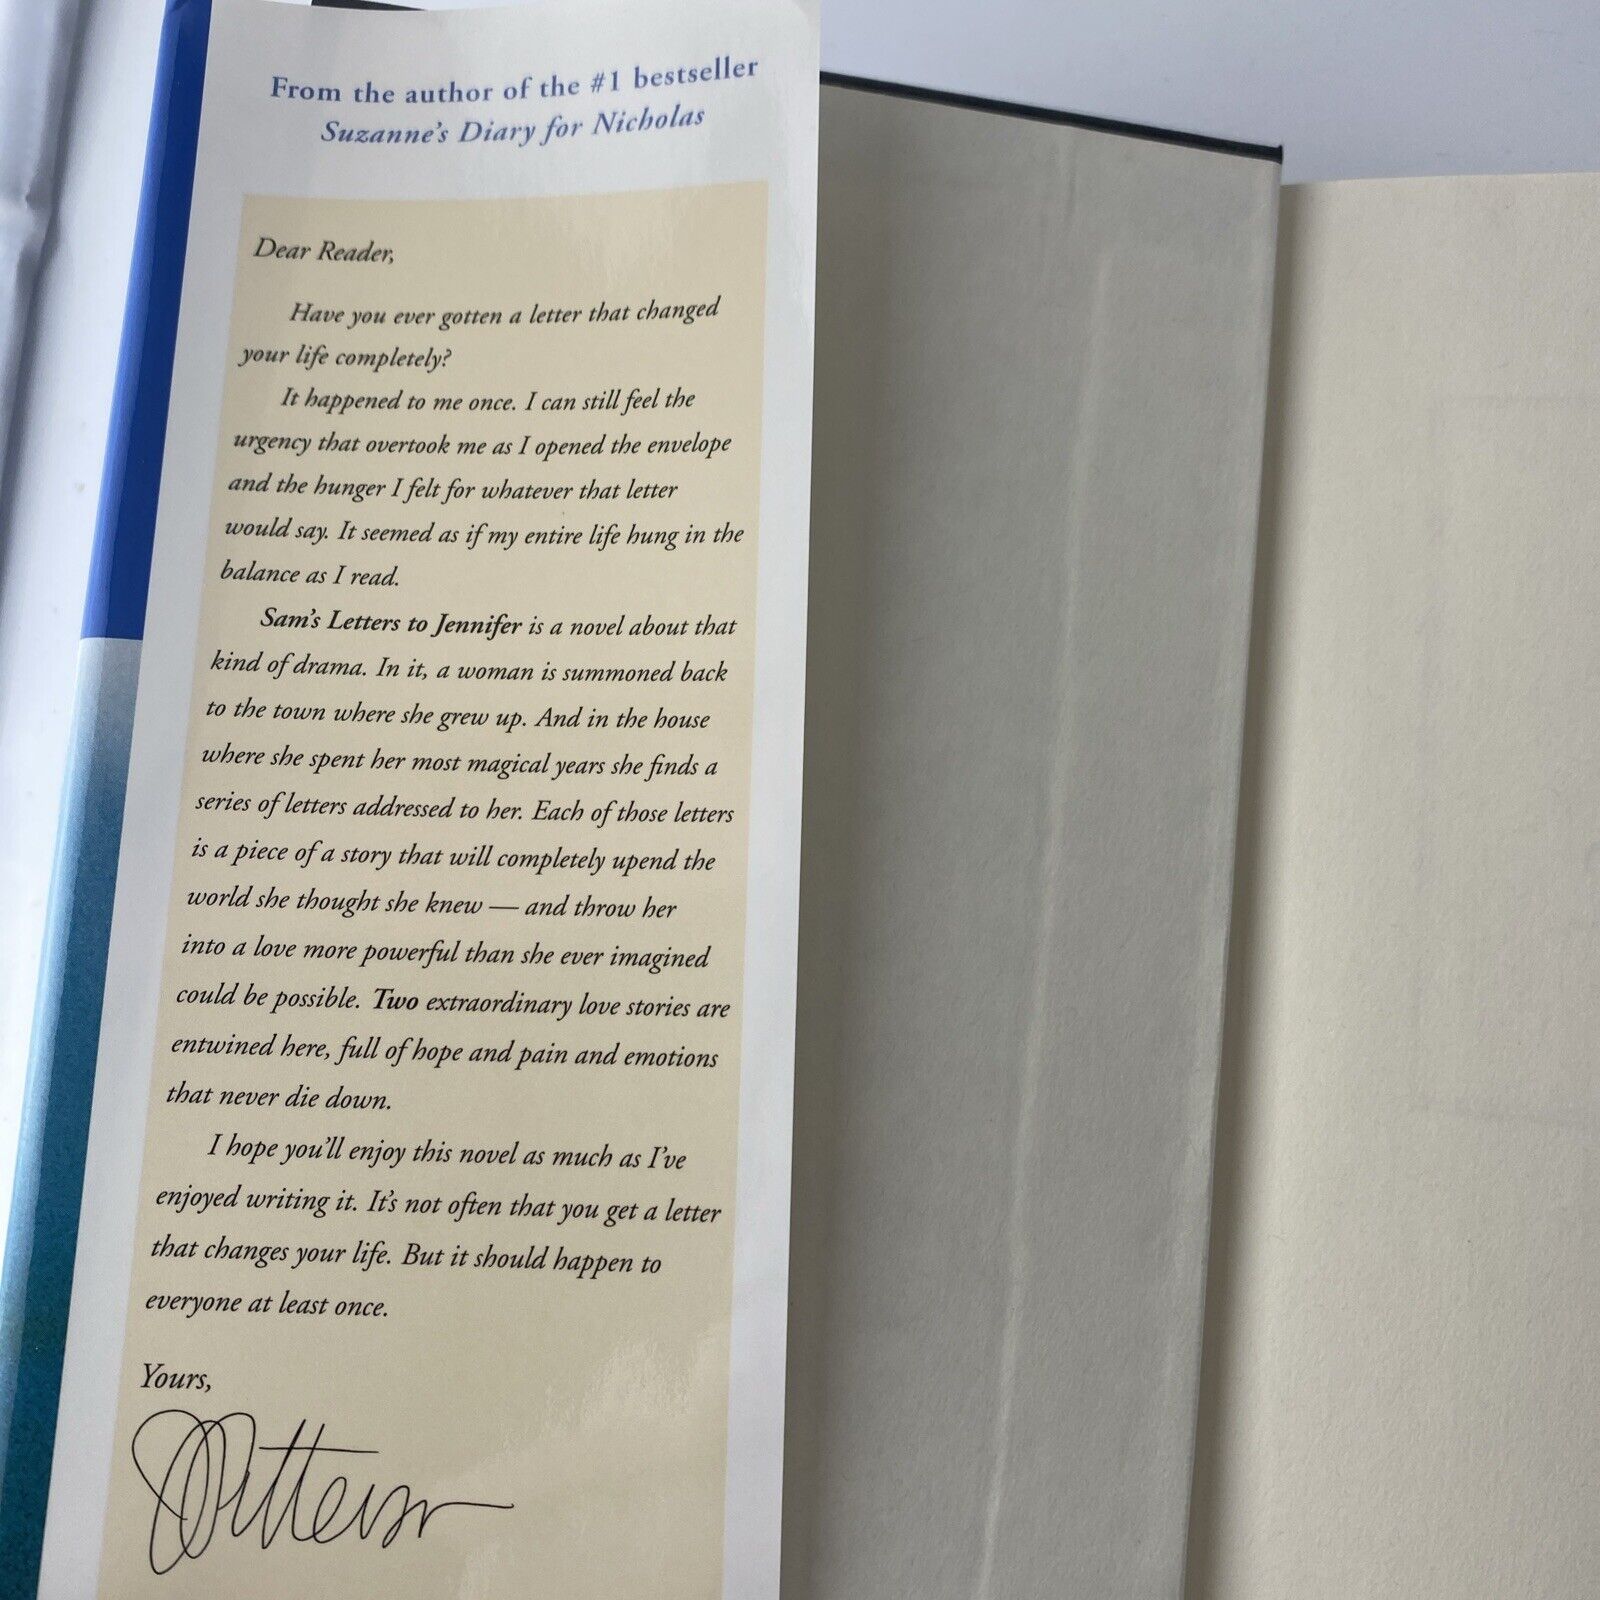 From the author of the #1 bestseller
Suzanne's Diary for Nicholas
Dear Reader,
Have you ever gotten a letter that changed
your life completely?
It happened to me once. I can still feel the
urgency that overtook me as I opened the envelope
and the hunger I felt for whatever that letter
would say. It seemed as if my entire life hung in the
balance as I read.
Sam's Letters to Jennifer is a novel about that
kind of drama. In it, a woman is summoned back
to the town where she grew up. And in the house
where she spent her most magical years she finds a
series of letters addressed to her. Each of those letters
is a piece of a story that will completely upend the
world she thought she knew — and throw her
into a love more powerful than she ever imagined
could be possible. Two extraordinary love stories are
entwined here, full of hope and pain and emotions
that never die down.
I hope you'll enjoy this novel as much as I've
enjoyed writing it. It's not often that you get a letter
that changes your life. But it should happen to
everyone at least once.
Yours,